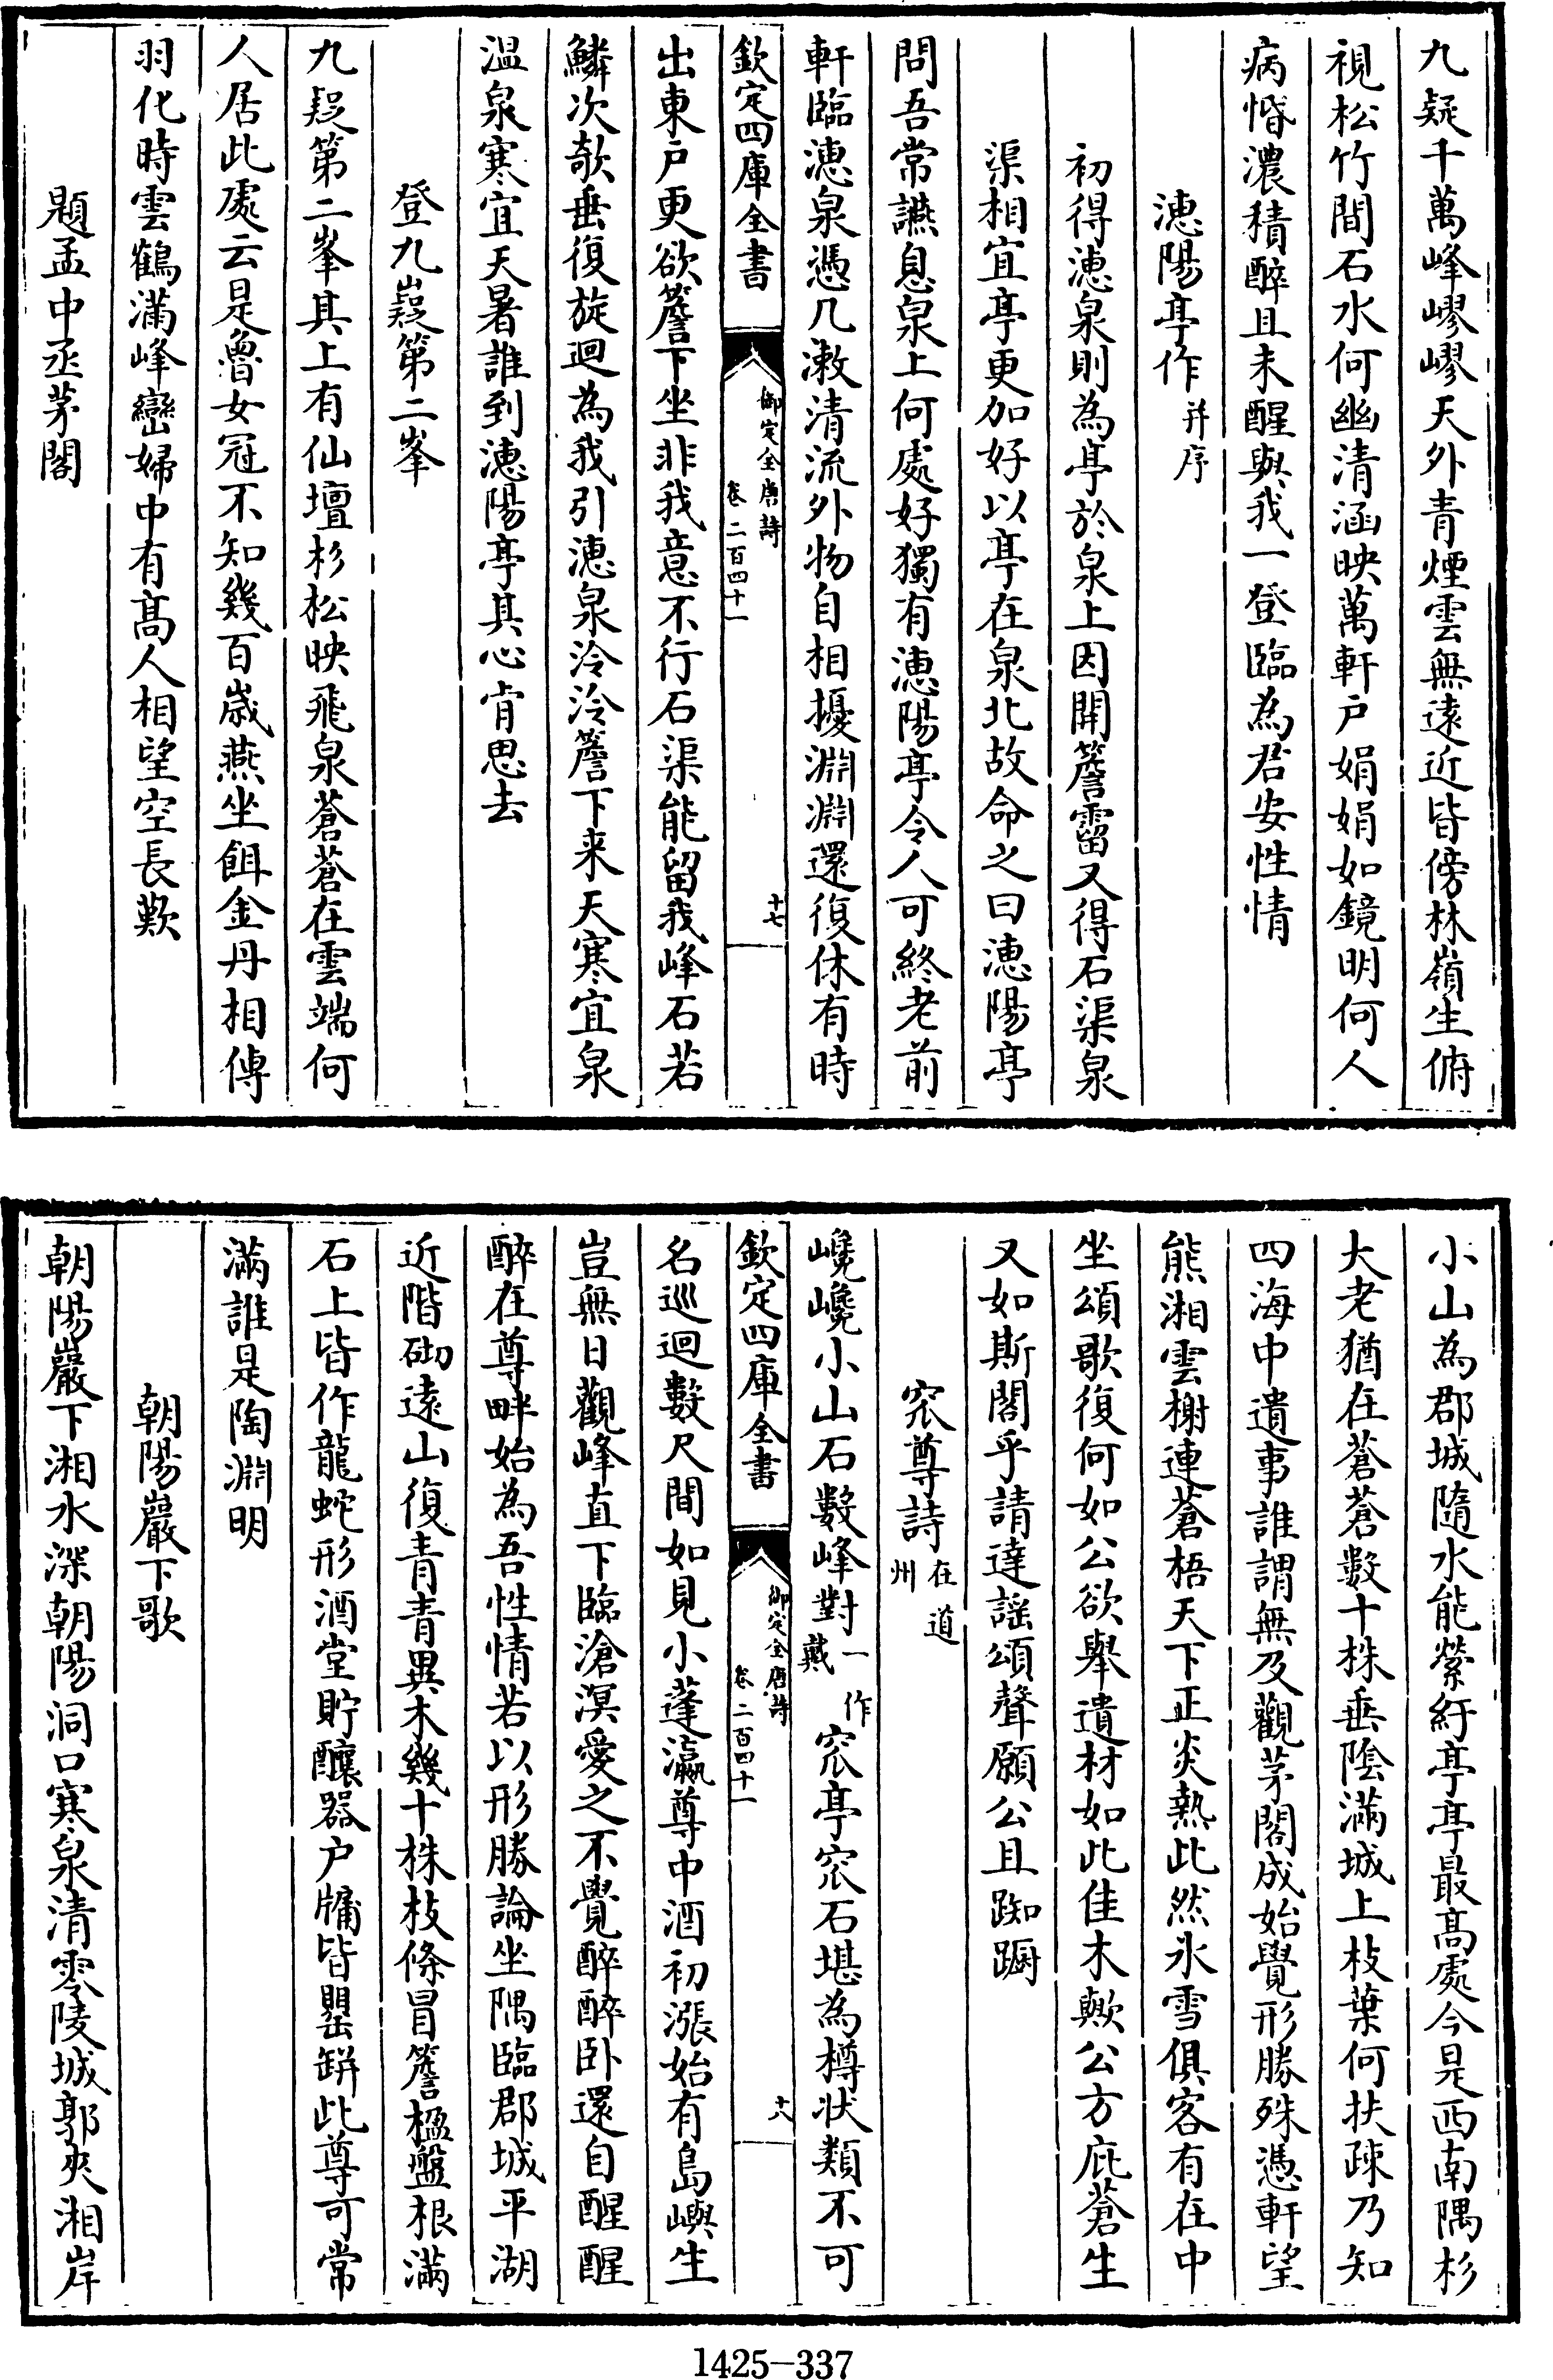 九疑千萬峰嵺嵺天外青煙雲無遠近皆傍林嶺生俯
視松竹間石水何幽清涵映萬軒戶娟娟如鏡明何人
病惛濃積醉且未醒與我一登臨為君安性情
潓陽亭作并序
初得潓泉則為亭於泉上因開簷霤又得石渠泉
渠相宜亭更加好以亭在泉北故命之曰潓陽亭
問吾常讌息泉上何處好獨有潓陽亭令人可終老前
軒臨潓泉憑几漱清流外物自相擾淵淵還復休有時
欽定四庫全書
御定全唐詩
卷二百四十一
十七
出東戶更欲簷下坐非我意不行石渠能留我峰石若
鱗次欹垂復旋迴為我引潓泉泠泠簷下来天寒宜泉
溫泉寒宜天暑誰到潓陽亭其心肯思去
登九嶷第二峯
九疑第二峯其上有仙壇杉松映飛泉蒼蒼在雲端何
人居此處云是魯女冠不知幾百歲燕坐餌金丹相傳
羽化時雲鶴滿峰巒婦中有髙人相望空長歎
題孟中丞茅閣
小山為郡城隨水能縈紆亭亭最髙處今是西南隅杉
大老猶在蒼蒼數十株垂陰滿城上枝葉何扶疎乃知
四海中遺事誰謂無及觀茅閣成始覺形勝殊憑軒望
熊湘雲榭連蒼梧天下正炎熱此然氷雪俱客有在中
坐頌歌復何如公欲舉遺材如此佳木歟公方庇蒼生
又如斯閣乎請達謠頌聲願公且踟躕
窊尊詩在道州
巉巉小山石數峰對一作戴窊亭窊石堪為樽狀類不可
欽定四庫全書
御定全唐詩
卷二百四十一
十八
名巡迴數尺間如見小蓬瀛尊中酒初漲始有島嶼生
豈無日觀峰直下臨滄溟愛之不覺醉醉卧還自醒醒
醉在尊畔始為吾性情若以形勝論坐隅臨郡城平湖
近階砌遠山復青青異木幾十株枝條冒簷楹盤根滿
石上皆作龍蛇形酒堂貯釀器户牖皆罌缾此尊可常
滿誰是陶淵明
朝陽巖下歌
朝陽巖下湘水深朝陽洞口寒泉清零陵城郭夾湘岸
1425-337